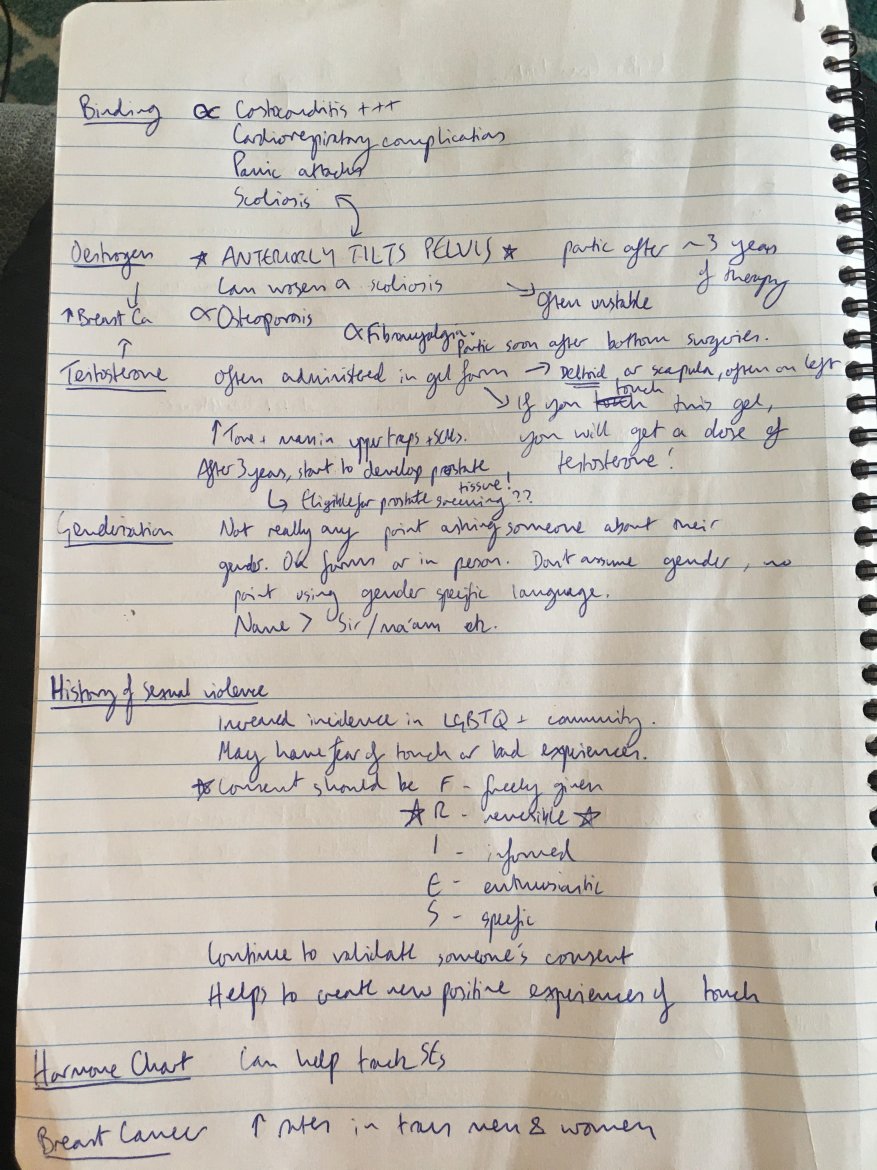 Binding ∝ Costoconditis +++
Cardiorespiratory complications
Panic attacks
Scoliosis
Oestrogen ☆ ANTERIORLY TILTS PELVIS ☆ partic after ~3 years of therapy
Can worsen a scoliosis → Often unstable
↑ Breast Ca ∝ Osteoporosis
∝ Fibromyalgia. Partic soon after bottom surgeries.
Testosterone often administered in gel form → Deltoid or scapula, often on left
→ If you touch this gel,
you will get a dose of
testosterone!
↑ Tone + mass in upper traps + SCMs.
After 3 years, start to develop prostate tissue!
↳ Eligible for prostate screening??
Genderization Not really any point asking someone about their
gender. On forms or in person. Don't assume gender, no
point using gender specific language.
Name > Sir/ma'am etc.
History of sexual violence
Increased incidence in LGBTQ+ community.
May have fear of touch or bad experiences.
☆ Consent should be F - freely given
☆ R - reversible ☆
I - informed
E - enthusiastic
S - specific
Continue to validate someone's consent
Helps to create new positive experiences of touch
Hormone Chart Can help track SEs
Breast Cancer ↑ rates in trans men & women